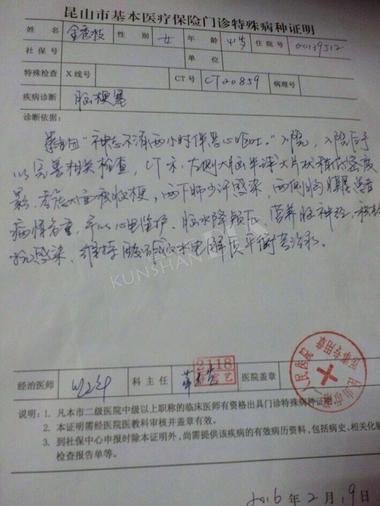 昆山市基本医疗保险门诊特殊病种证明
姓名 性别 女 年龄 41岁 住院号 00139512
社保号 单位
特殊检查 X线号 CT号 CT20859 病理号
疾病诊断 脑梗塞
诊断依据:
患者因"神志不清两小时伴恶心呕吐"入院,入院后予
以完善相关检查,CT示:右侧大脑半球大片状稍低密度
影,考虑大面积脑梗,两下肺少许感染,两侧胸膜
病情危重,予以心电监护、脑水降颅压、营养脑神经、
抗感染、维持酸碱水电解质平衡等治疗。
KUNSHAN
经治医师 科主任 2118 医院盖章
说明:1. 凡本市二级医院中级以上职称的临床医师有资格出具门诊特殊病种证明
2. 本证明需经医院医教科审核并盖章有效。
3. 到社保中心申报时除本证明外,尚需提供该疾病的有效病历资料,包括病史、相关化验
检查报告单等。
2016年2月19日